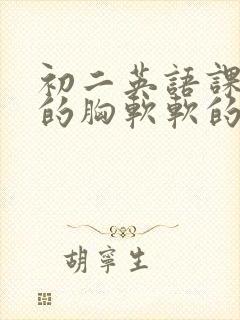 初二英語課
的胸軟軟的
胡寧生